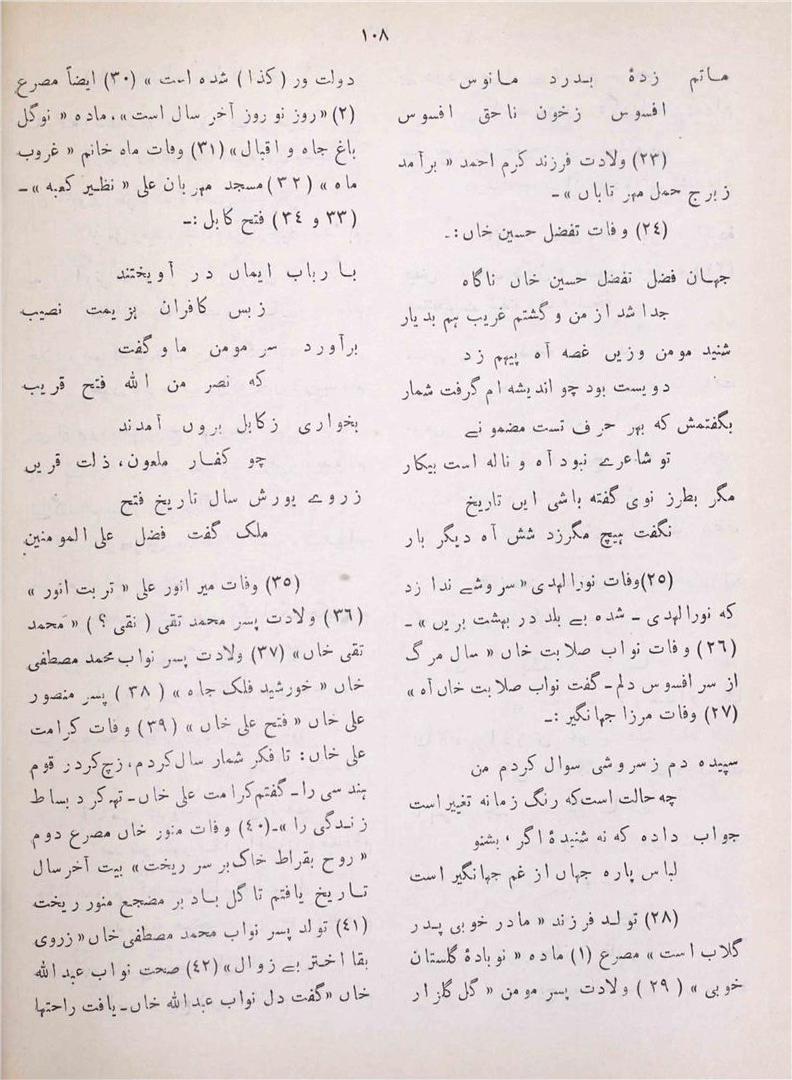 ۱۰۸
ماتم زدۂ بدرد مانوس
افسوس زخون ناحق افسوس
(۲۳) ولادت فرزند کرم احمد « برآمد
زبرج حمل مہر تاباں »ـ
(۲٤) وفات تفضل حسین خاں:ـ
جہان فضل تفضل حسین خاں ناگاہ
جدا شد از من و گشتم غریب ہم بدیار
شنید مومن وزیں غصہ آہ پیہم زد
دویست بود چو اندیشہ ام گرفت شمار
بگفتمش کہ بہر حرف تست مضمونے
تو شاعرے نبود آہ و نالہ است بیکار
مگر بطرز نوی گفتہ باشی ایں تاریخ
نگفت ہیچ مگرزد شش آہ دیگر بار
(۲۵)وفات نورالہدی « سروشے ندا زد
کہ نورالہدی ـ شدہ بے بلد در بہشت بریں »ـ
(۲٦) وفات نواب صلابت خاں « سال مرگ
از سر افسوس دلم ـ گفت نواب صلابت خاں آہ »
(۲۷) وفات مرزا جہانگیر :ـ
سپیدہ دم زسروشی سوال کردم من
چہ حالت است کہ رنگ زمانہ تغییر است
جواب دادہ کہ نہ شنیدۂ اگر ، بشنو
لباس پارہ جہاں از غم جہانگیر است
(۲۸) تولد فرزند « مادر خوبی پدر
گلاب است » مصرع (۱) مادہ « نوبادۂ گلستان
خوبی » (۲۹) ولادت پسر مومن « گل گلزار
دولت ور (کذا) شدہ است » (۳۰) ایضاً مصرع
(۲) « روز نو روز آخر سال است »، مادہ « نوگل
باغ جاہ و اقبال » (۳۱) وفات ماہ خانم « غروب
ماہ » (۳۲) مسجد مہربان علی « نظیر کعبہ »ـ
(۳۳ و ۳٤) فتح کابل :ـ
بارباب ایماں در آویختند
زبس کافراں ہزیمت نصیب
برآورد سر مومن ما و گفت
کہ نصر من اللہ فتح قریب
بخواری زکابل بروں آمدند
چو کفار ملعون، ذلت قریں
زروے یورش سال تاریخ فتح
ملک گفت فضل علی المومنین
(۳۵) وفات میر انور علی « تربت انور »
(۳٦) ولادت پسر محمد تقی (نقی ؟) « محمد
تقی خاں » (۳۷) ولادت پسر نواب محمد مصطفی
خاں « خورشید فلک جاہ » (۳۸) پسر منصور
علی خاں « فتح علی خاں » (۳۹) وفات کرامت
علی خاں: تا فکر شمار سال کردم، زچ کرد رقوم
ہندسی را ـ گفتم کرامت علی خاں ـ تہ کرد بساط
زندگی را »ـ(٤۰) وفات منور خاں مصرع دوم
« روح بقراط خاک بر سر ریخت » بیت آخر سال
تاریخ یافتم تا گل باد بر مضجع منور ریخت
(٤۱) تولد پسر نواب محمد مصطفی خاں « زروی
بقا اختر بے زوال » (٤۲) صحت نواب عبداللہ
خاں « گفت دل نواب عبداللہ خاں ـ یافت راحتہا